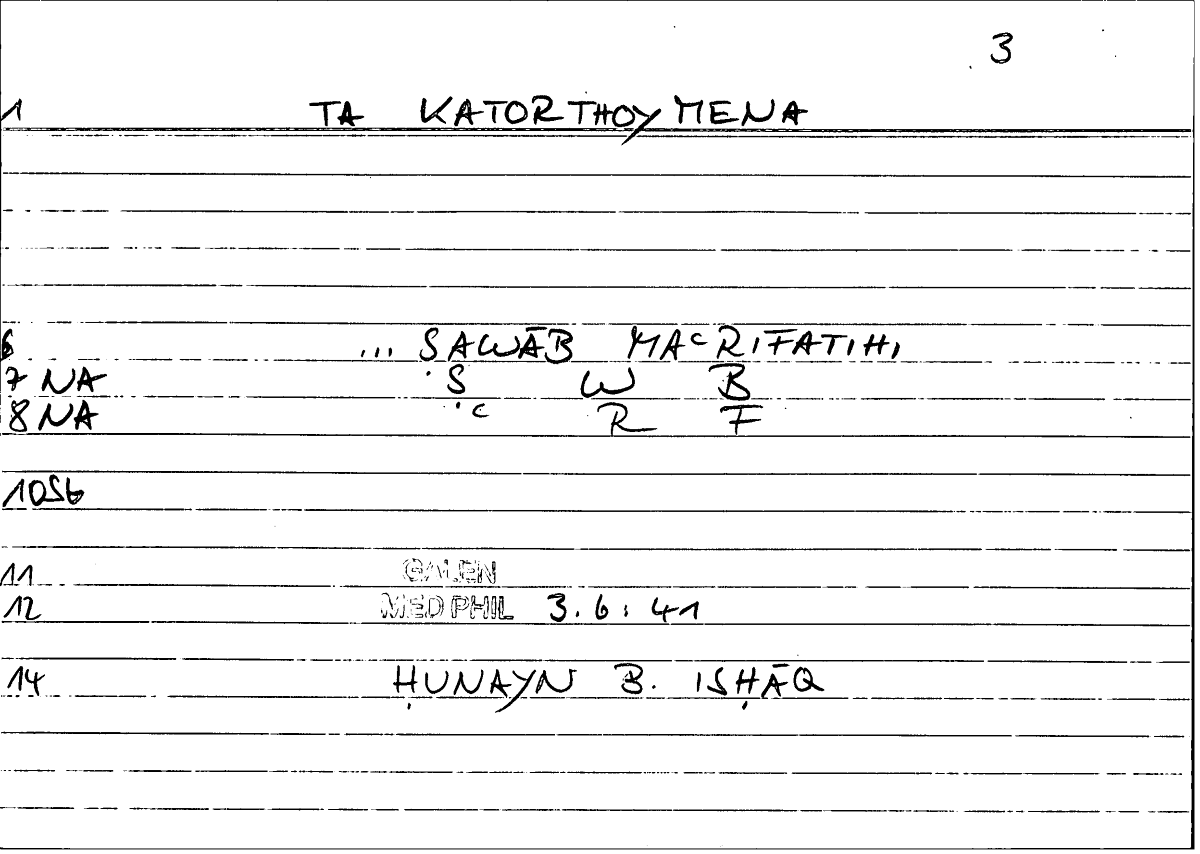 3
1 TA KATORTHOYMENA
6 ... ṢAWĀB MAʿRIFATIHI
7 NA Ṣ W B
8 NA ʿ R F
10S6
11 GALEN
12 MED PHIL 3.6:41
14 ḤUNAYN B. ISḤĀQ